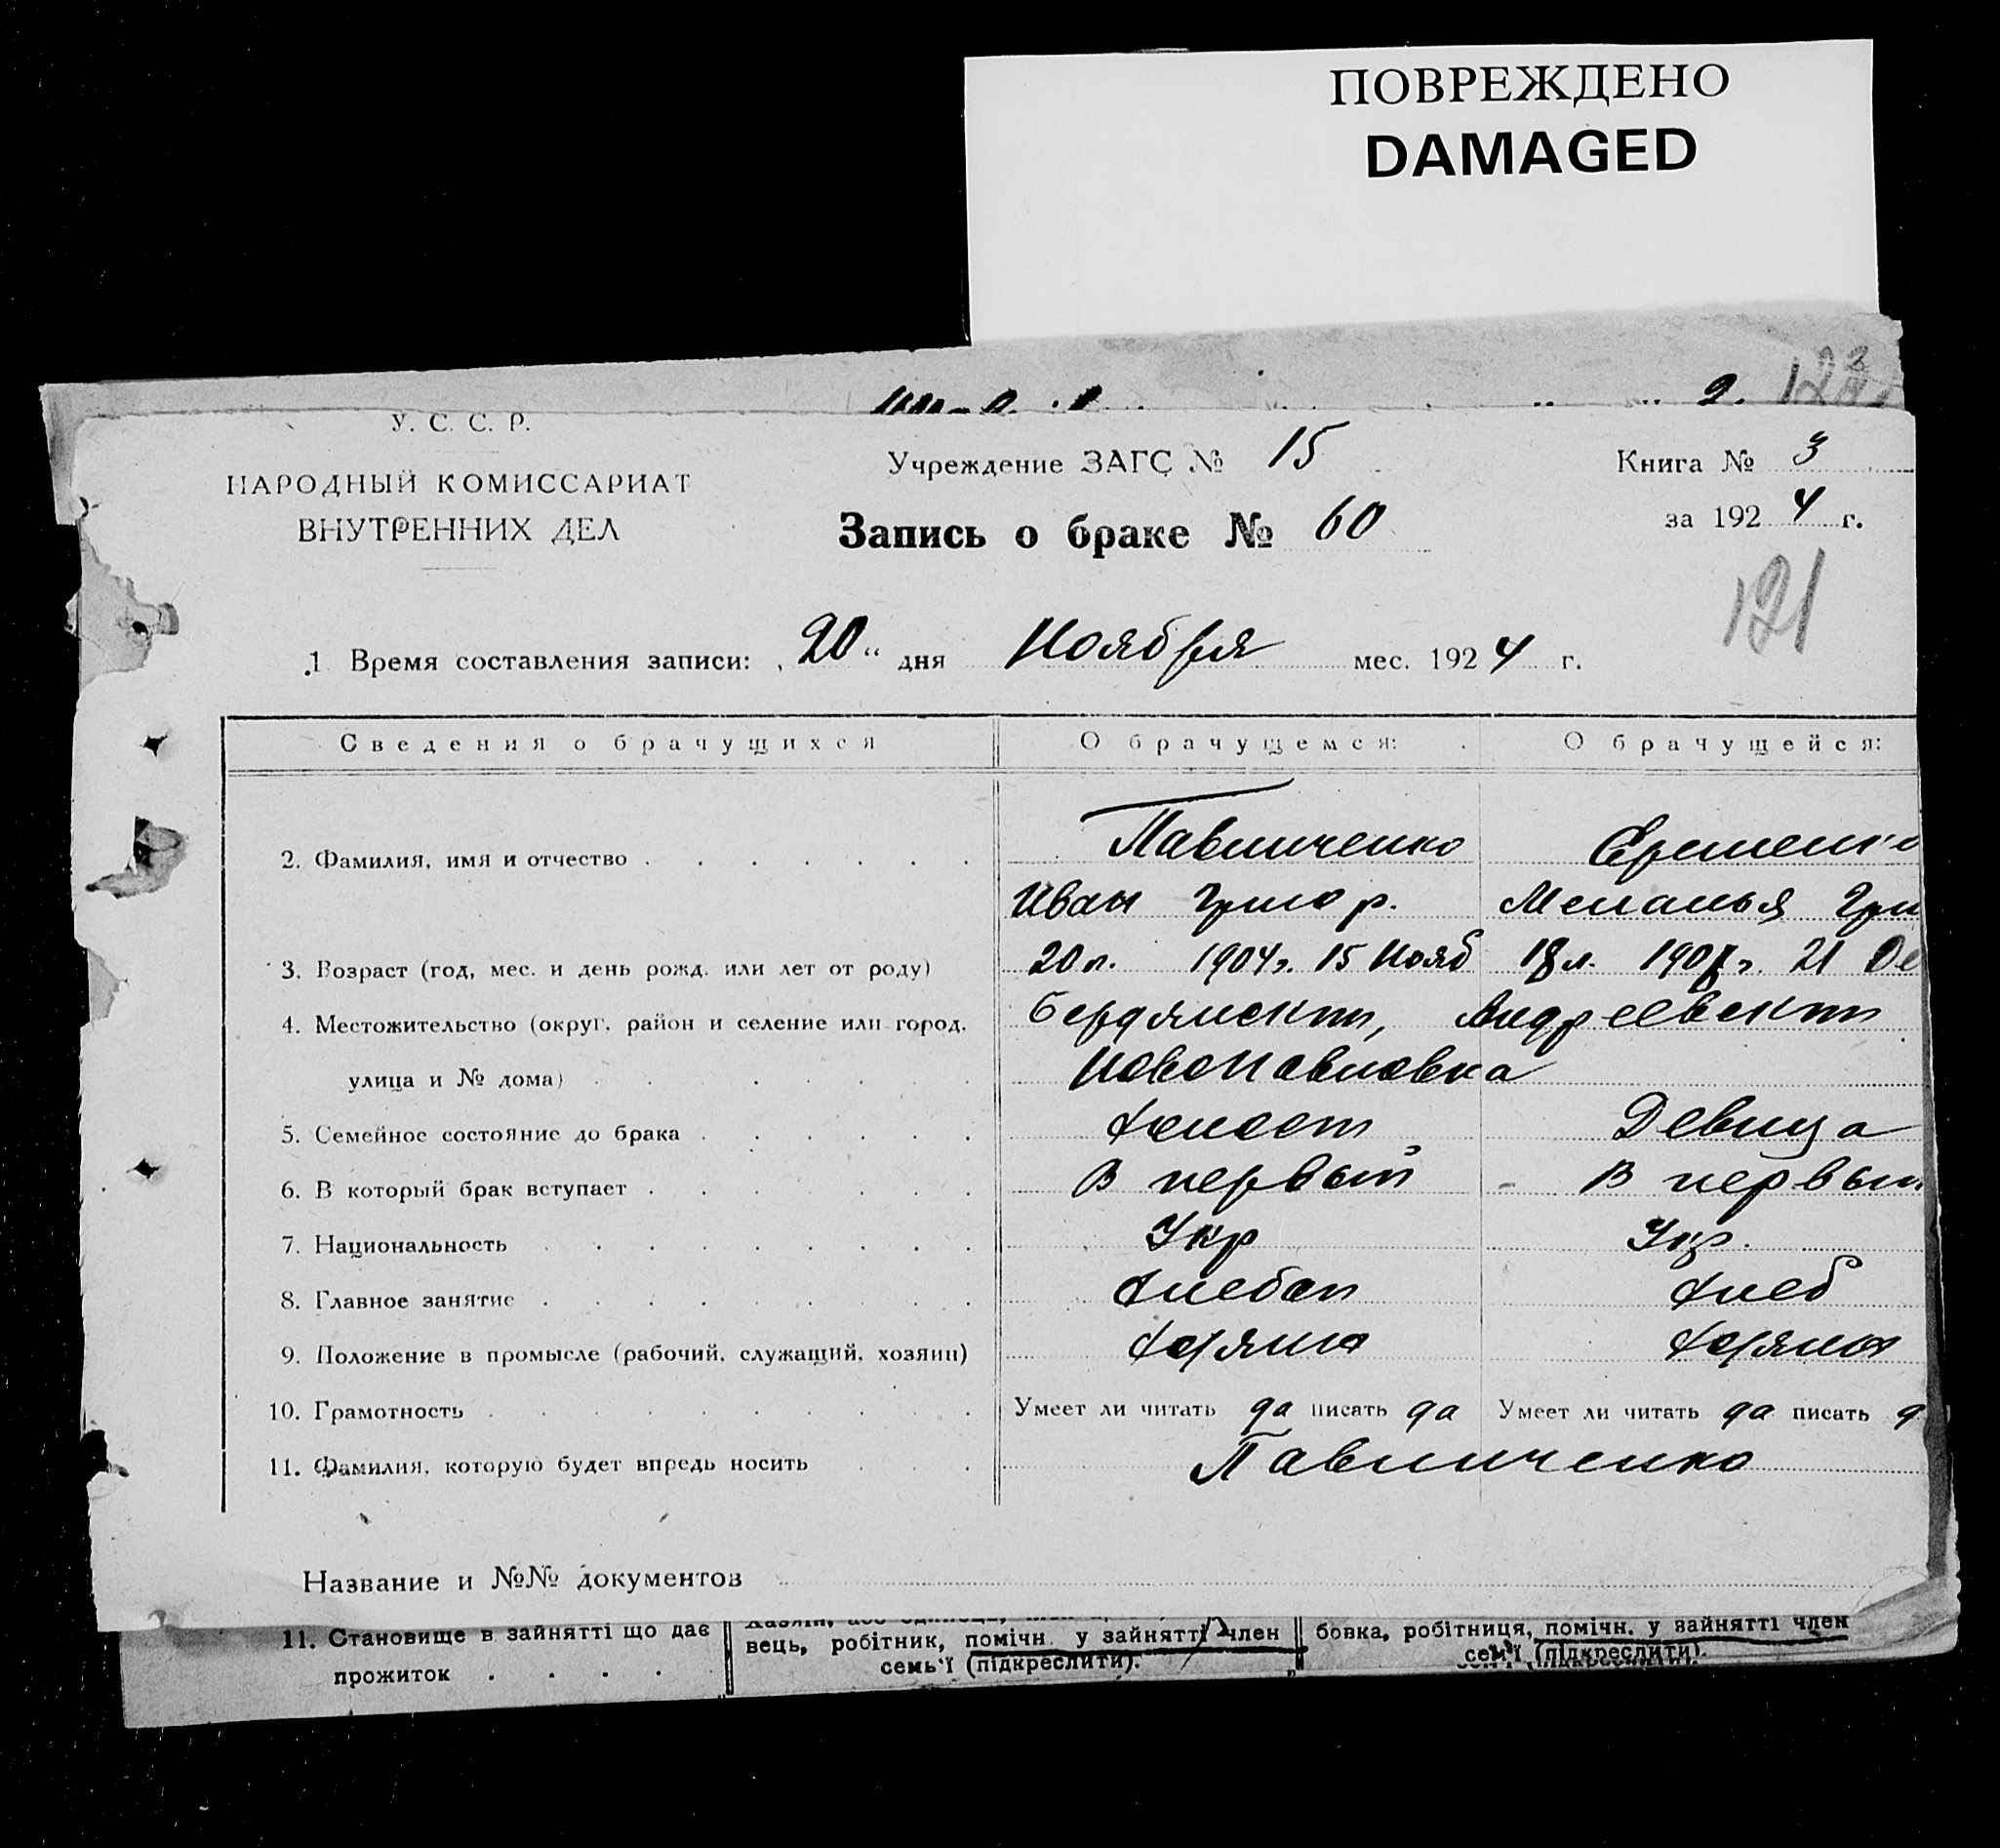 ПОВРЕЖДЕНО
DAMAGED
У. С. С. Р.
НАРОДНЫЙ КОМИССАРИАТ
ВНУТРЕННИХ ДЕЛ
Учреждение ЗАГС № 15
Запись о браке № 60
Книга № 3
за 1924 г.
121
1 Время составления записи: „20“ дня Ноября мес. 1924 г.
Сведения о брачущихся О брачущемся: О брачущейся:
2. Фамилия, имя и отчество Павличенко
Иван Григор. Меланья Гри
3. Возраст (год, мес. и день рожд. или лет от роду) 20 л. 1904 г. 15 Нояб 18 л. 21 Де
4. Местожительство (округ, район и селение или город, Бердянск Андреевск
улица и № дома) Новопавловка
5. Семейное состояние до брака Холост Девица
6. В который брак вступает В первый В первый
7. Национальность Укр Укр.
8. Главное занятие Хлебоп Хлеб
9. Положение в промысле (рабочий, служащий, хозяин)
10. Грамотность Умеет ли читать да писать да Умеет ли читать да писать д
11. Фамилия, которую будет впредь носить Павличенко
Название и №№ документов
11. Становище в зайнятті що дає
прожиток
вець, робітник, помічн. у зайнятті член
семь'ї (підкреслити).
бовка, робітниця, помічн. у зайнятті член
сем'ї (підкреслити).